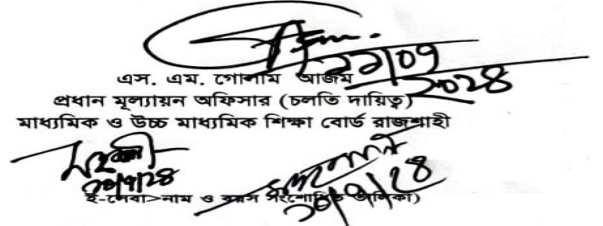 ২১|০৭
২০২৪
এস. এম. গোলাম আজম
প্রধান মূল্যায়ন অফিসার (চলতি দায়িত্ব)
মাধ্যমিক ও উচ্চ মাধ্যমিক শিক্ষা বোর্ড রাজশাহী
২১/৭/২৪
২১/৭/২৪
ই-সেবা>নাম ও বয়স সংশোধিত তালিকা)